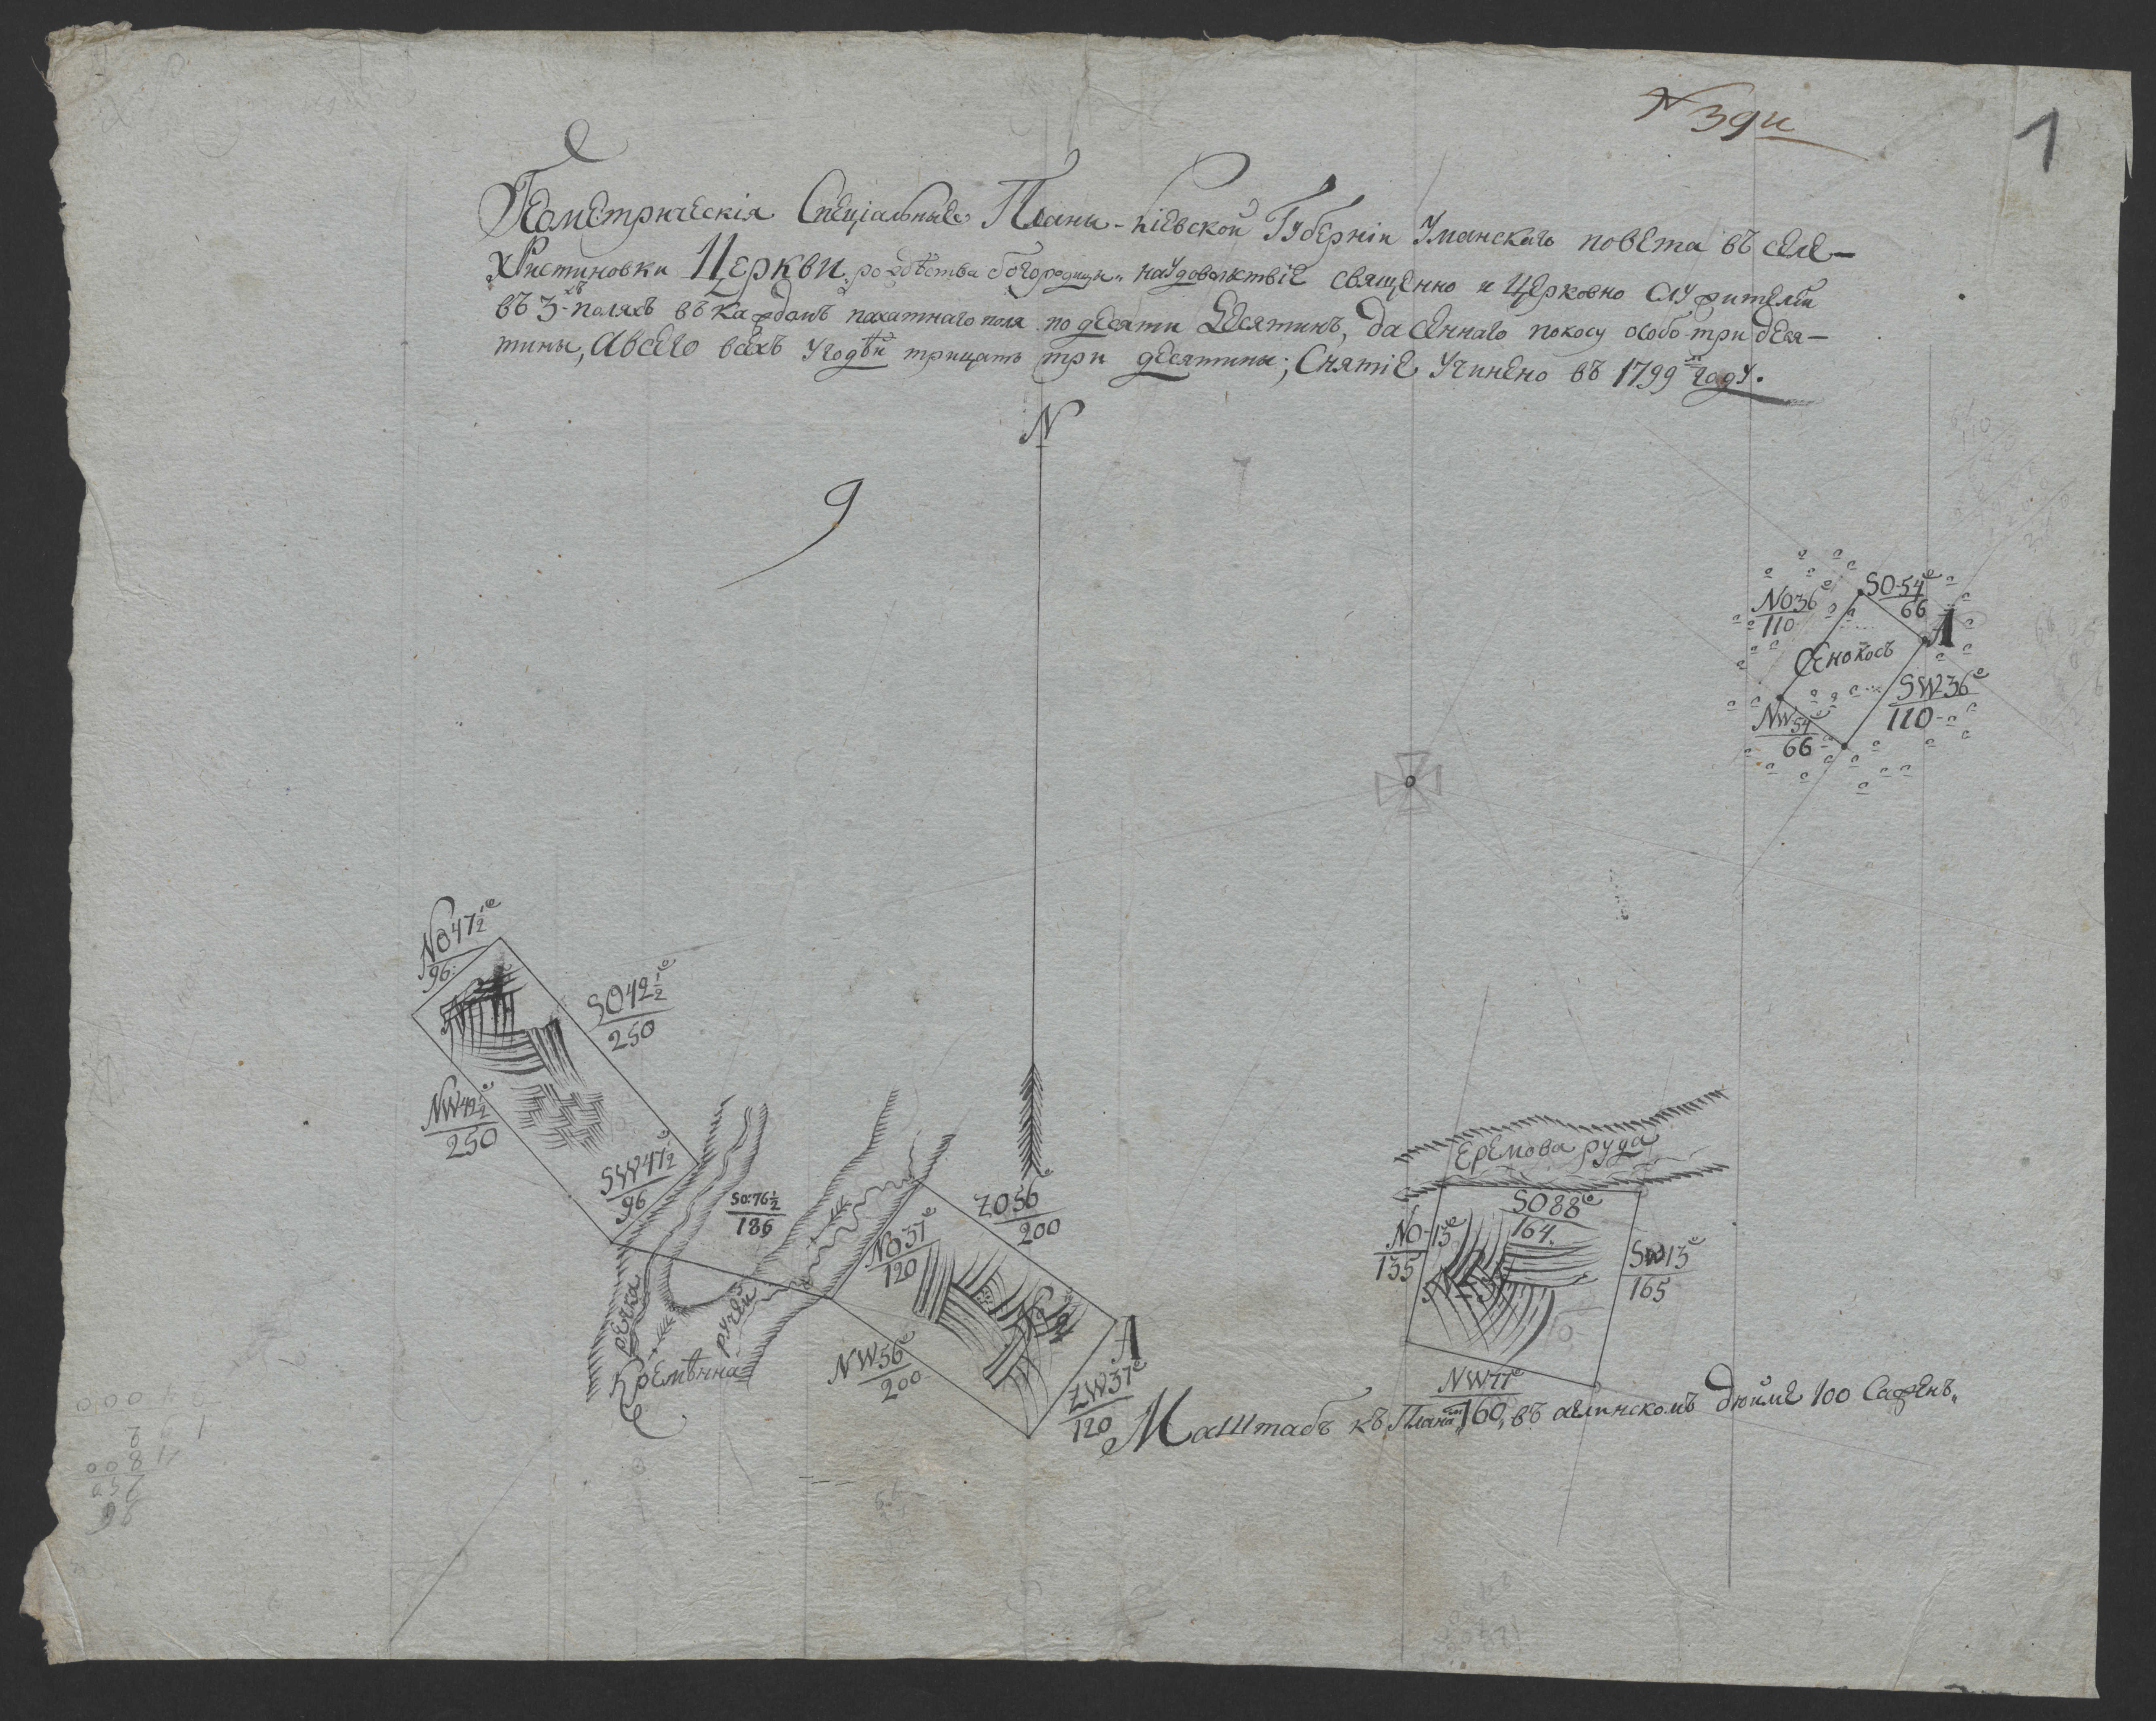 N 39й
1
Геометрическія Спеціальныя Планы Кіевской Губерніи Уманскаго повета въ селе—
Христиновки Церкви рождѣства богородицы на удовольствіе священно и церковно служителей
въ 3-хъ поляхъ въ каждомъ пахатнаго поля по десяти Десятинъ, да сеннаго покосу особо три деся—
тины, А всего всехъ угодѣй трицать три десятины; Снятіе Учинено въ 1799м году.
N
9
SO 54
66
NO 36
110
A
Сенокосъ
SW 36
110
NW 54
66
NO 47 1/2
96
SO 42 1/2
250
NW 42 1/2
250
SW 47 1/2
96
SO: 76 1/2
186
ZO 56
200
NO 37
120
NW 56
200
A
ZW 37
120
речка
ручей
Кремѣнна
Еремова руда
SO 88
164
NO 13
135
SW 13
165
N 3й
NW 77
160
Машштабъ къ Планамъ въ аглинскомъ дюйме 100 Саженъ